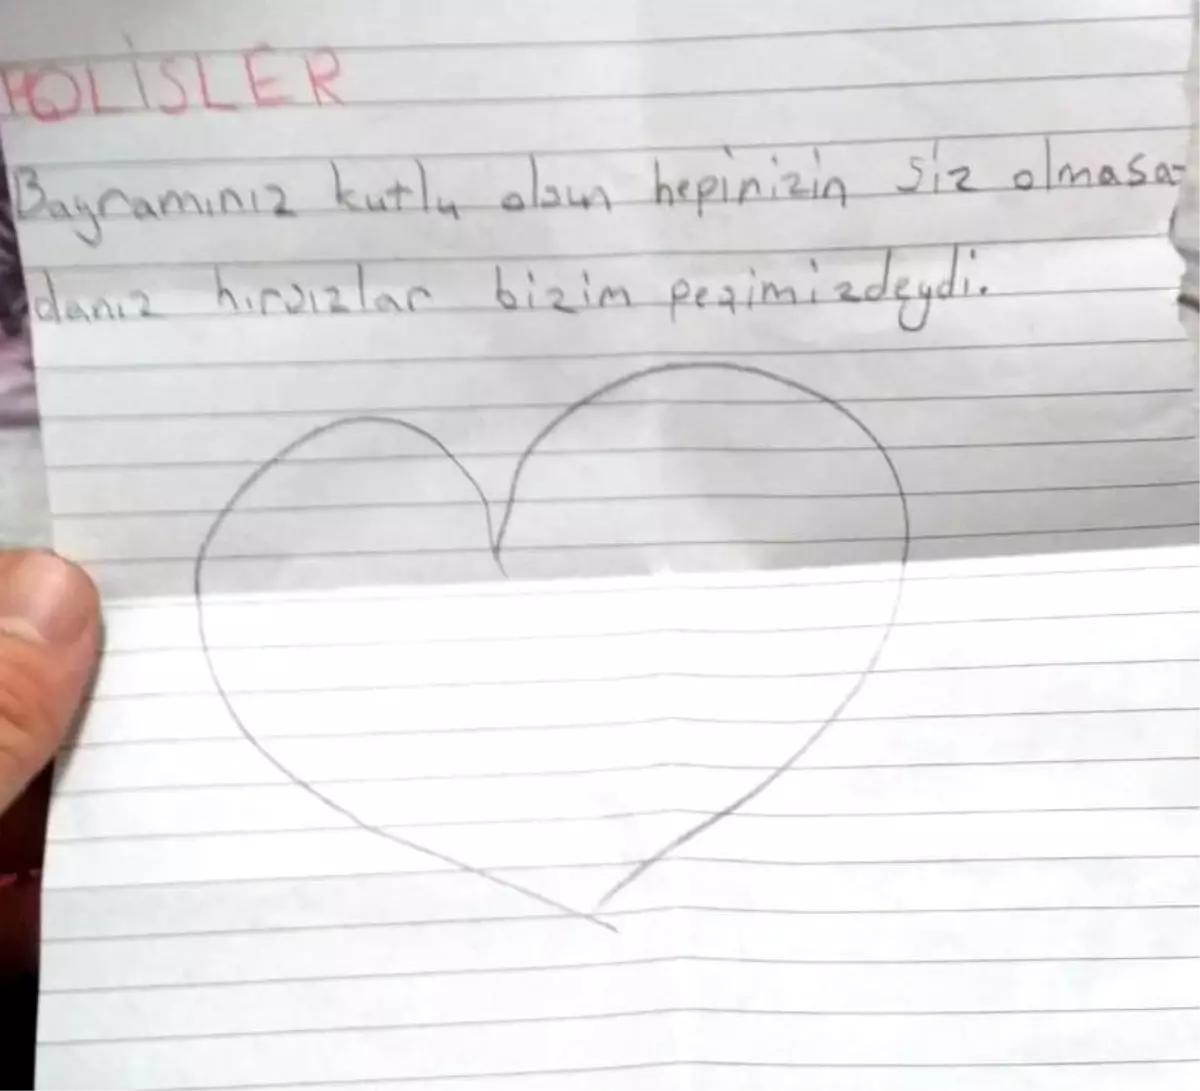 POLİSLER
Bayramınız kutlu olsun hepinizin siz olmasa-
danız hırsızlar bizim pezimizdeydi.